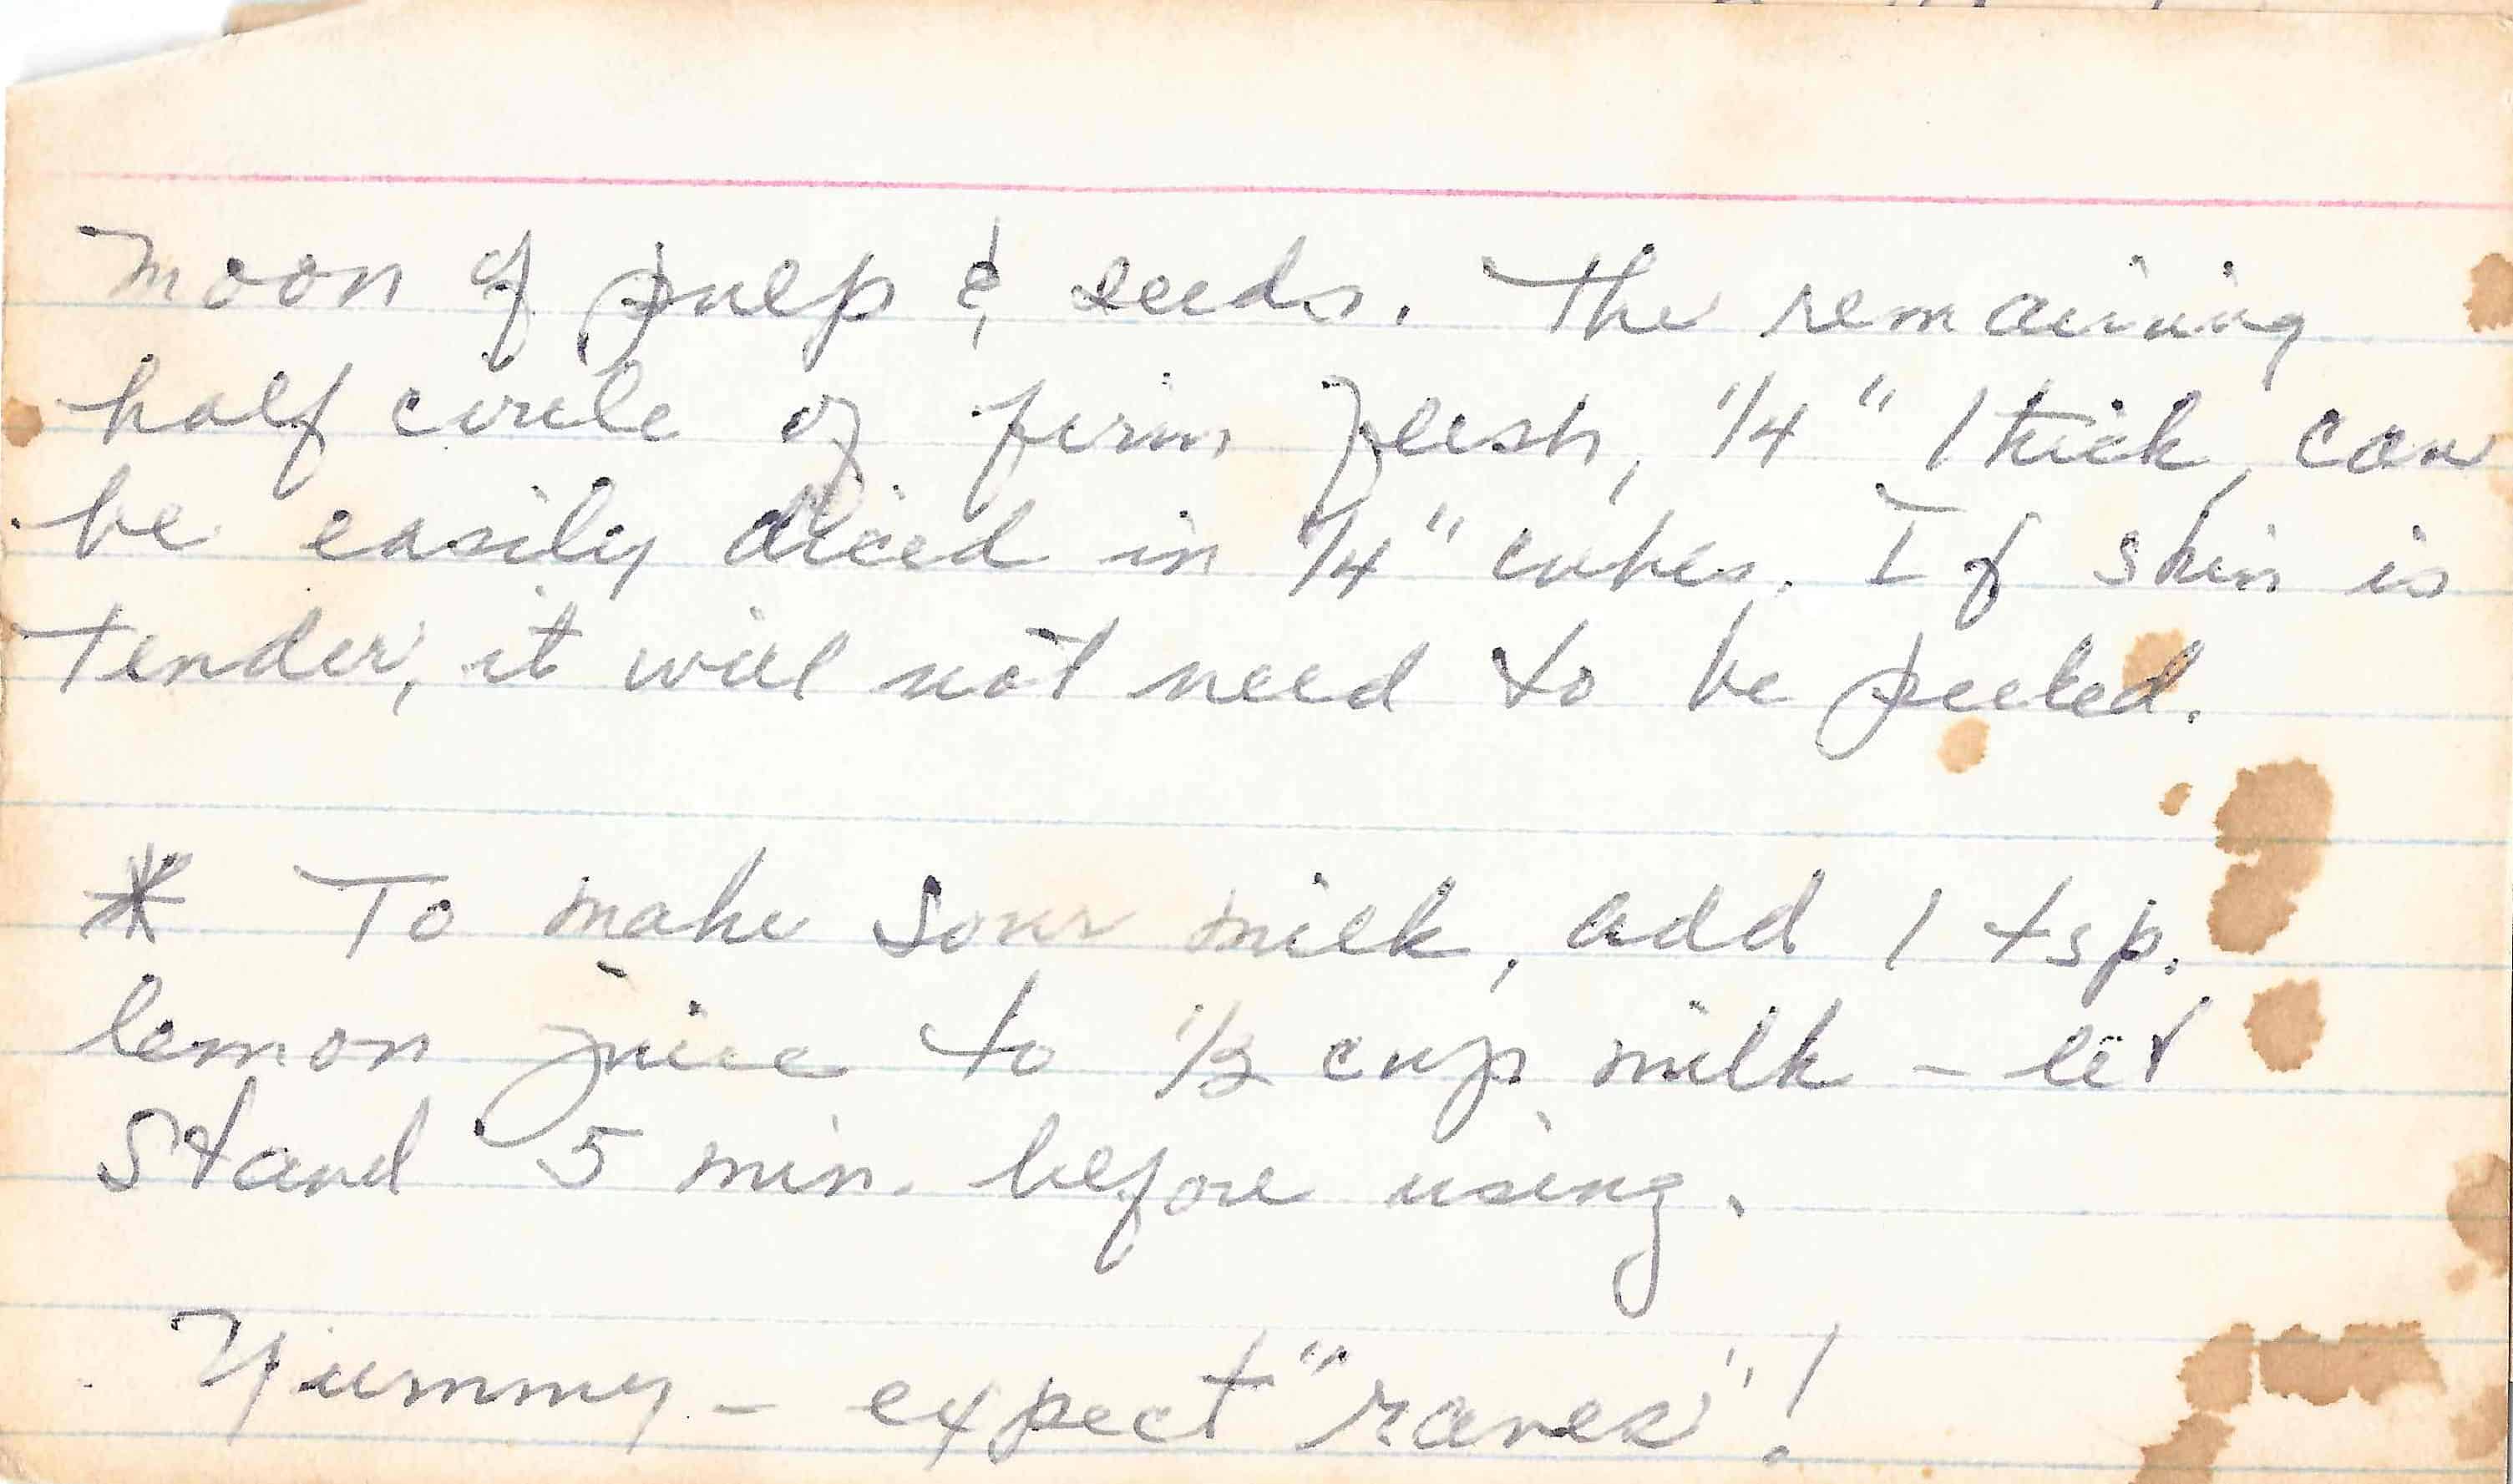 moon of pulp & seeds. The remaining
half circle of firm flesh, 1/4" thick, can
be easily diced in 1/4" cubes. If skin is
tender, it will not need to be peeled.
* To make sour milk, add 1 tsp.
lemon juice to 1/2 cup milk - let
stand 5 min. before using.
Yummy - expect "raves"!